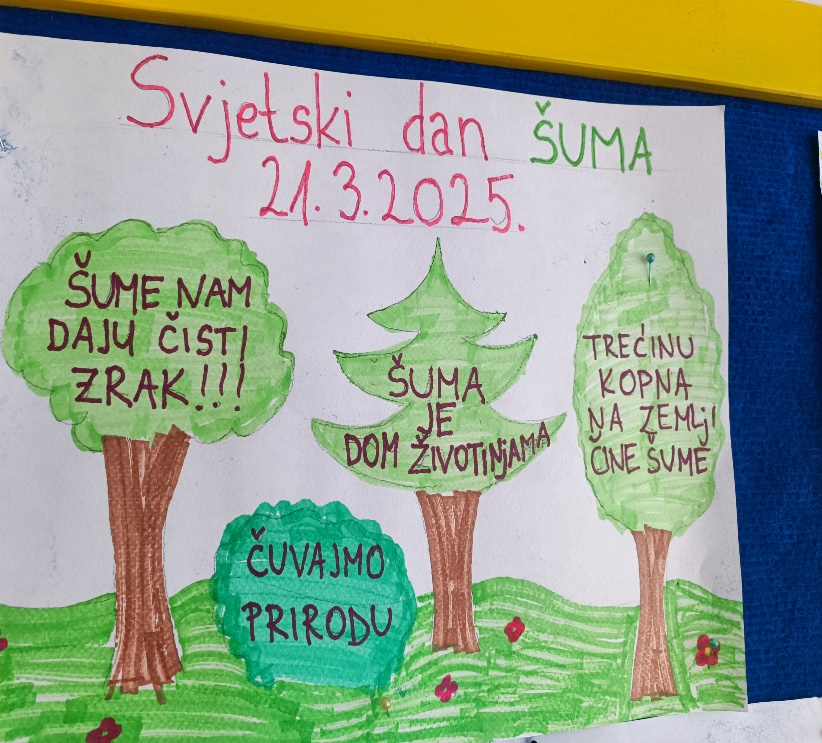 Svjetski dan ŠUMA
21.3.2025.
ŠUME NAM
DAJU ČISTI
ZRAK!!!
ŠUMA
JE
DOM ŽIVOTINjAMA
TREĆINU
KOPNA
NA ZEMLjI
ČINE ŠUME
ČUVAJMO
PRIRODU